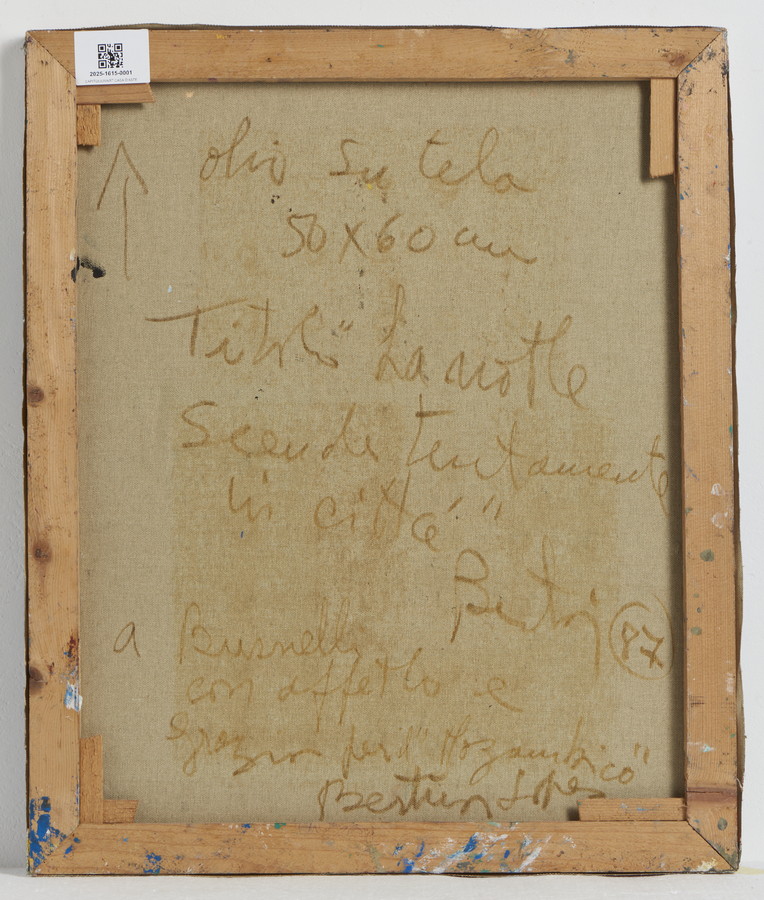 2025-1615-0001
olio su tela
50x60 cm
Titolo "La notte
scende lentamente
in città"
Bertini 87
a Busnelli
con affetto e
grazie per il "Mozambico"
Bertina Lopes